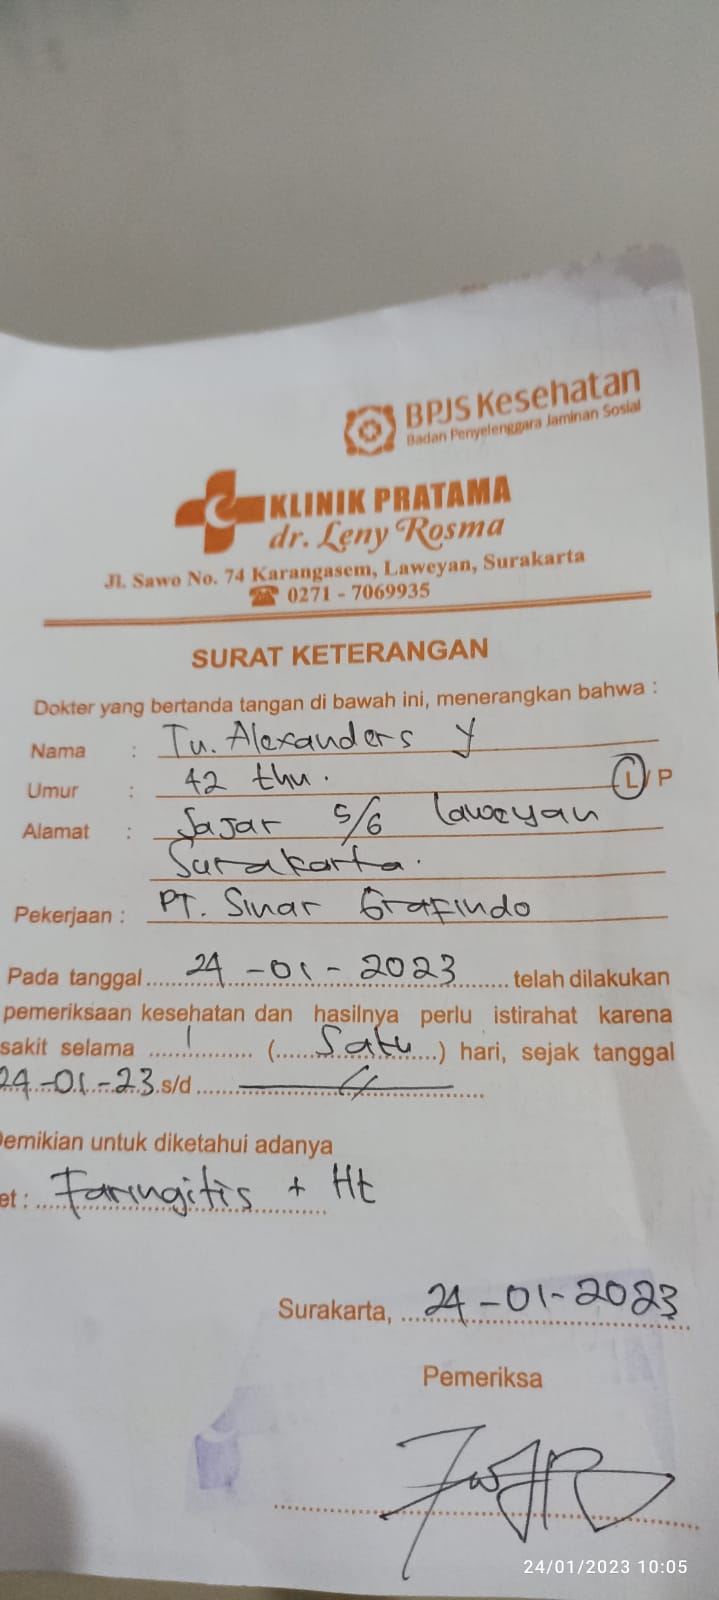 BPJS Kesehatan
Badan Penyelenggara Jaminan Sosial
KLINIK PRATAMA
dr. Leny Rosma
Jl. Sawo No. 74 Karangasem, Laweyan, Surakarta
☎ 0271 - 7069935
SURAT KETERANGAN
Dokter yang bertanda tangan di bawah ini, menerangkan bahwa :
Nama : Tn. Alexanders Y
Umur : 42 thn. L/P
Alamat : Jajar 5/6 Laweyan
Surakarta.
Pekerjaan : PT. Sinar Grafindo
Pada tanggal 24-01-2023 telah dilakukan
pemeriksaan kesehatan dan hasilnya perlu istirahat karena
sakit selama 1 (Satu) hari, sejak tanggal
24-01-23 s/d
Demikian untuk diketahui adanya
et : Faringitis + Ht
Surakarta, 24-01-2023
Pemeriksa
24/01/2023 10:05